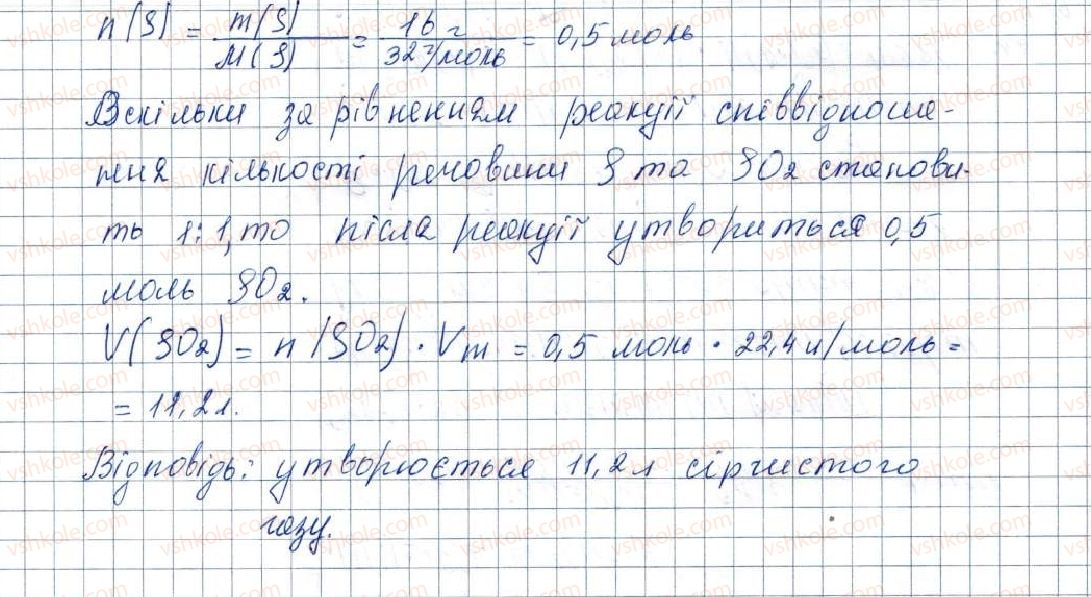 n(S) = m(S) / M(S) = 16 г / 32 г/моль = 0,5 моль
Вскільки за рівненням реакції співвідноше-
ння кількості речовини S та SO2 станови-
ть 1:1, то після реакції утвориться 0,5
моль SO2.
V(SO2) = n(SO2) · Vm = 0,5 моль · 22,4 л/моль =
= 11,2 л.
Відповідь: утворюється 11,2 л сірчистого
газу.
vshkole.com